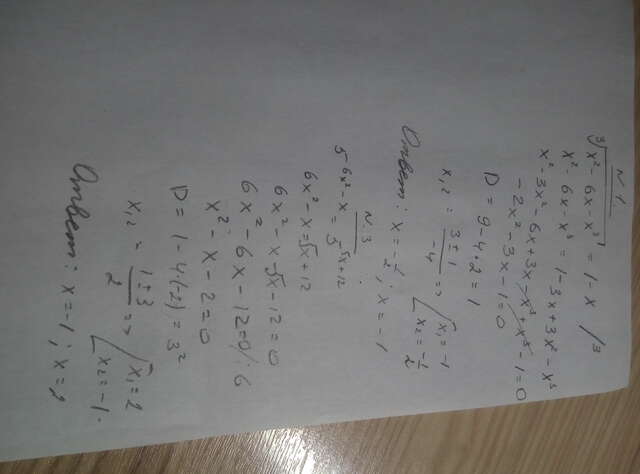 N. 1
³√(x² - 6x - x³) = 1 - x /³
x² - 6x - x³ = 1 - 3x + 3x² - x³
x² - 3x² - 6x + 3x - x³ + x³ - 1 = 0
- 2x² - 3x - 1 = 0
D = 9 - 4·2 = 1
x₁,₂ = (3 ± 1)/(-4) => [x₁ = -1
x₂ = -1/2
Ответ: x = -1/2; x = -1
N. 3
5^(6x² - x) = 5^(5x + 12)
6x² - x = 5x + 12
6x² - x - 5x - 12 = 0
6x² - 6x - 12 = 0 /: 6
x² - x - 2 = 0
D = 1 - 4(-2) = 3²
x₁,₂ = (1 ± 3)/2 => [x₁ = 2
x₂ = -1.
Ответ: x = -1; x = 2